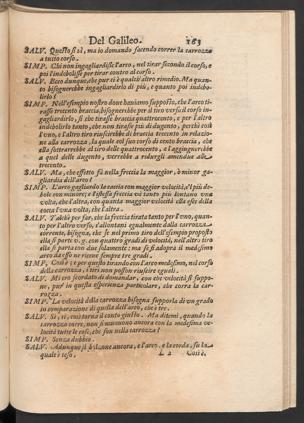 Del Galileo. 163
SALV. Questo si sà, ma io domando facendo correr la carrozza
a tutto corso.
SIMP. Chi non ingagliardisse l'arco, nel tirar secondo il corso, e
poi l'indebolisse per tirar contro al corso.
SALV. Ecco dunque, che pur ci è qualch'altro rimedio. Ma quan-
to bisognerebbe ingagliardirlo di più, e quanto poi indebo-
lirlo?
SIMP. Nell'esempio nostro dove haviamo supposto, che l'arco ti-
rasse trecento braccia, bisognerebbe per il tiro verso il corso in-
gagliardirlo, sì che tirasse braccia quattrocento, e per l'altro
indebolirlo tanto, che non tirasse più di dugento, perchè così
l'uno, e l'altro tiro riuscirebbe di braccia trecento in relazio-
ne alla carrozza, la quale col suo corso di cento braccia, che
ella sottrarrebbe al tiro delle quattrocento, e l'aggiugnerebbe
a quel delle dugento, verrebbe a ridurgli amendue alle
trecento.
SALV. Ma, che effetto fà nella freccia la maggior, ò minor ga-
gliardia dell'arco?
SIMP. L'arco gagliardo la caccia con maggior velocità, e'l più de-
bole con minore; e l'istessa freccia và tanto più lontano una
volta, che l'altra, con quanta maggior velocità ella esce della
cocca l'una volta, che l'altra.
SALV. Talchè per far, che la freccia tirata tanto per l'uno, quan-
to per l'altro verso, s'allontani egualmente dalla carrozza
corrente, bisogna, che se nel primo tiro dell'esempio proposto
ella si parte v. g. con quattro gradi di velocità, nell'altro tiro
ella si parta con due solamente: ma se si adopra il medesimo
arco da esso ne riceve sempre tre gradi.
SIMP. Così è; e per questo tirando con l'arco medesimo, nel corso
della carrozza, i tiri non posson riuscire eguali.
SALV. Mi ero scordato di domandar, con che velocità si suppo-
ne, pur in questa esperienza particolare, che corra la car-
rozza.
SIMP. La velocità della carrozza bisogna supporla di un grado
in comparazione di quella dell'arco, che è tre.
SALV. Sì, sì, così torna il conto giusto. Ma ditemi, quando la
carrozza corre, non si muovono ancora con la medesima ve-
locità tutte le cose, che son nella carrozza?
SIMP. Senza dubbio.
SALV. Adunque il bolzone ancora, e l'arco, e la corda, sù la
quale è teso. L 2 Così è.